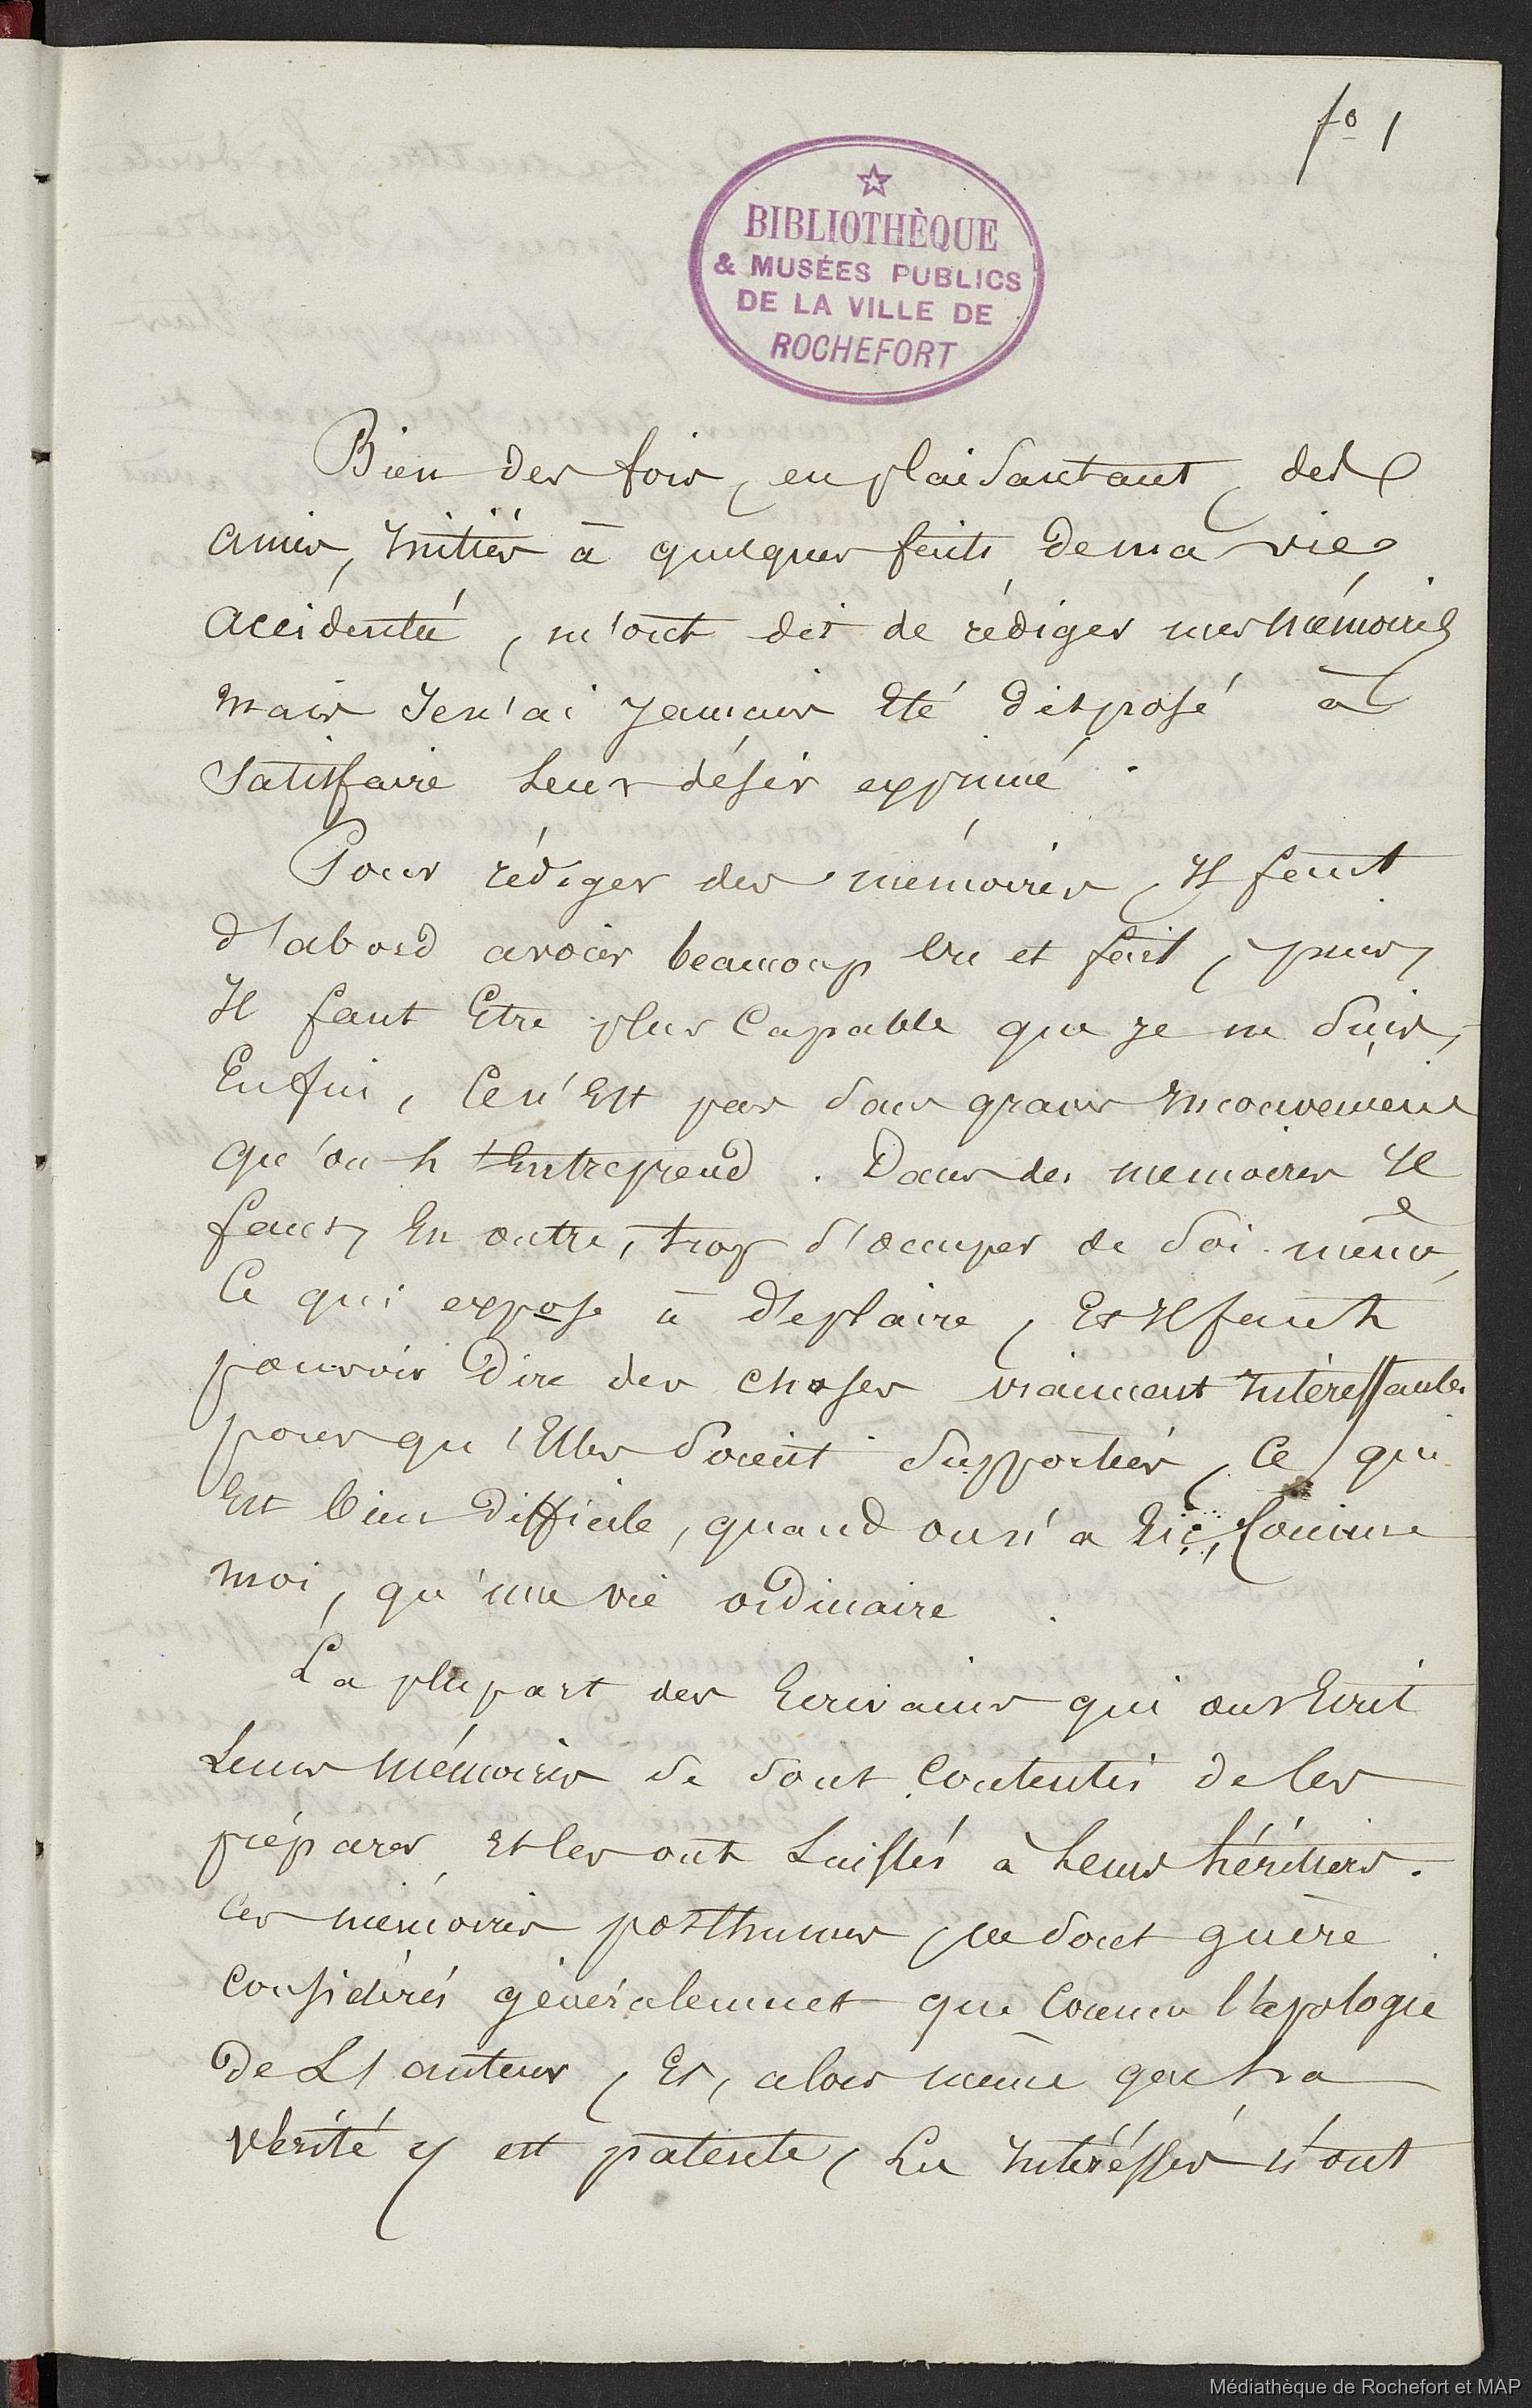 fo 1
BIBLIOTHÈQUE
& MUSÉES PUBLICS
DE LA VILLE DE
ROCHEFORT
Bien des fois, en plaisantant, des
amis, initiés à quelques faits de ma vie
accidentée, m'ont dit de rédiger mes mémoires
mais je n'ai jamais été disposé à
satisfaire leur désir exprimé.
Pour rédiger des mémoires, il faut
d'abord avoir beaucoup vu et fait, puis,
il faut être plus capable que je ne suis,
Enfin, ce n'est pas sans graves inconvénients
qu'on l'entreprend. Dans des memoires il
faut, en outre, trop s'occuper de soi-même,
ce qui expose à déplaire, et il faut
pouvoir dire des choses vraiment intéressantes
pour qu'elles soient supportées, ce qui
est bien difficile, quand on n'a eu, comme
moi, qu'une vie ordinaire.
La plupart des écrivains qui ont écrit
leurs mémoires se sont contentés de les
préparer et les ont laissés à leurs héritiers.
Ces mémoires posthumes, ne sont guère
considérés généralement que comme l'apologie
de l'auteur, et, alors même que la
vérité y est patente, les intéressés n'ont
Médiathèque de Rochefort et MAP